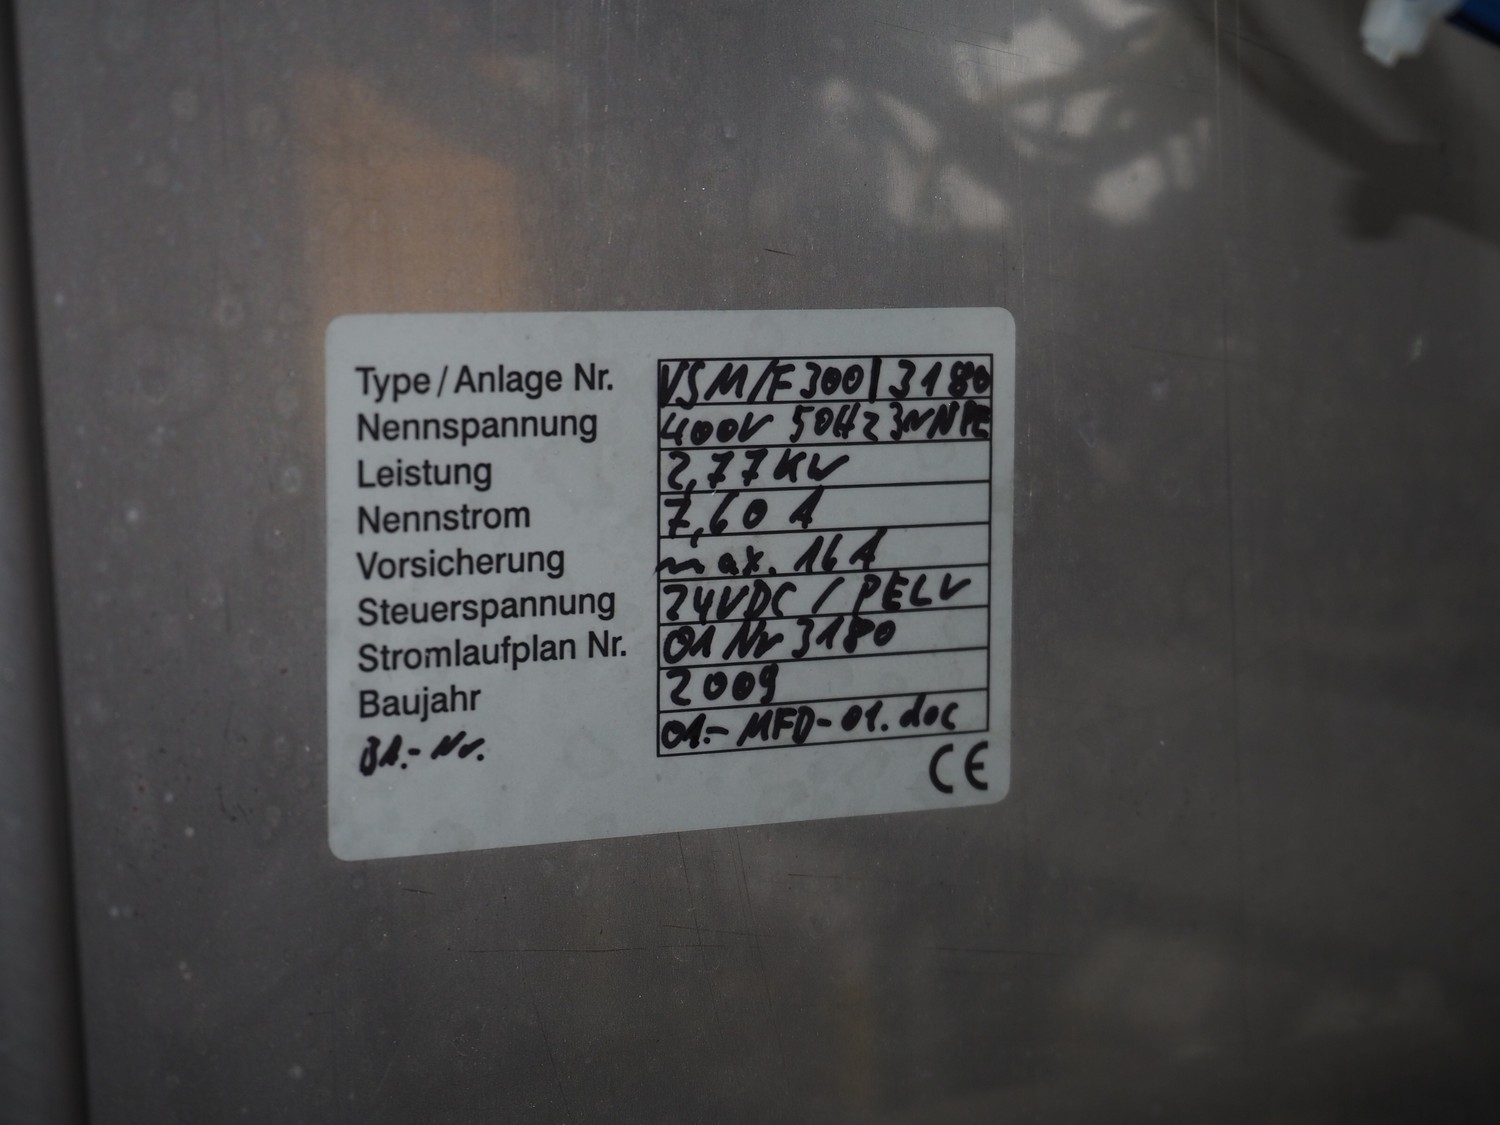 Type / Anlage Nr. VSM/F300 | 3180
Nennspannung 400V 50Hz 3~NPE
Leistung 2,77 KV
Nennstrom 7,60 A
Vorsicherung max. 16 A
Steuerspannung 24VDC / PELV
Stromlaufplan Nr. 01 Nr 3180
Baujahr 2009
BA.-Nr. 01.-MFD-01.doc
CE